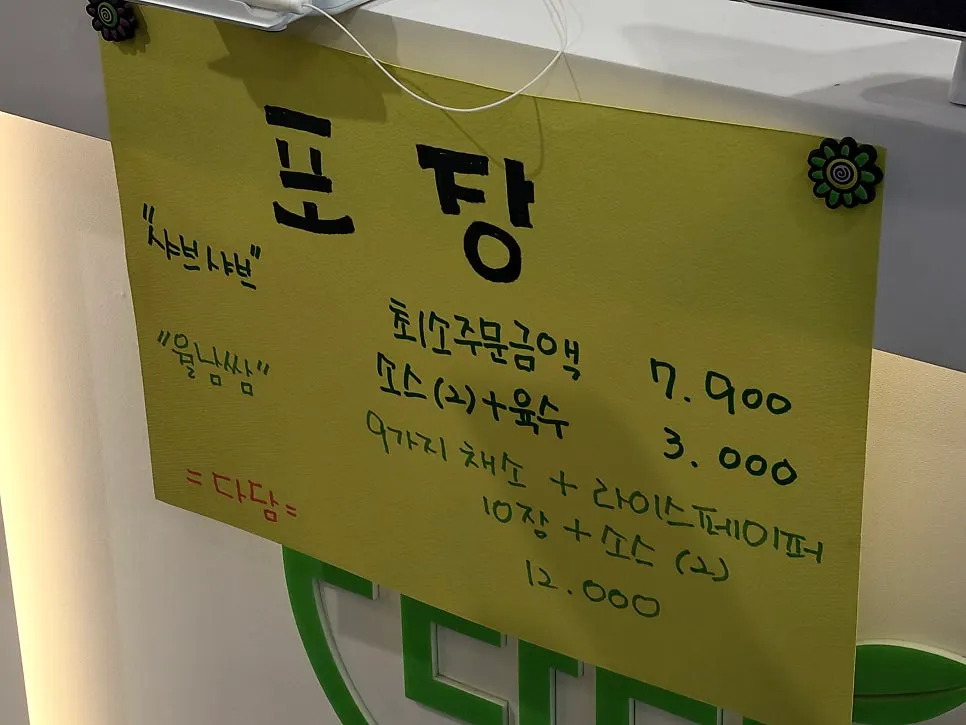 포장
"샤브샤브"
최소주문금액 7.900
소스(2)+육수 3.000
"월남쌈"
9가지 채소 + 라이스페이퍼
10장 + 소스 (2)
12.000
= 다담 =